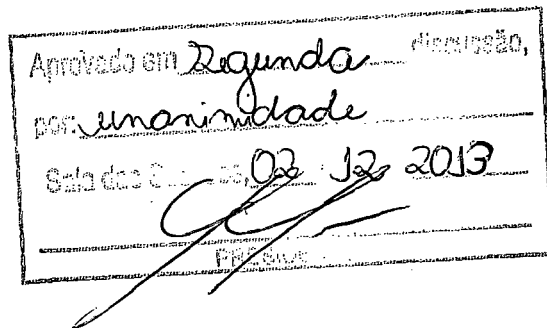 Aprovado em Segunda discussão,
por: unanimidade
Sala das 02 12 2013